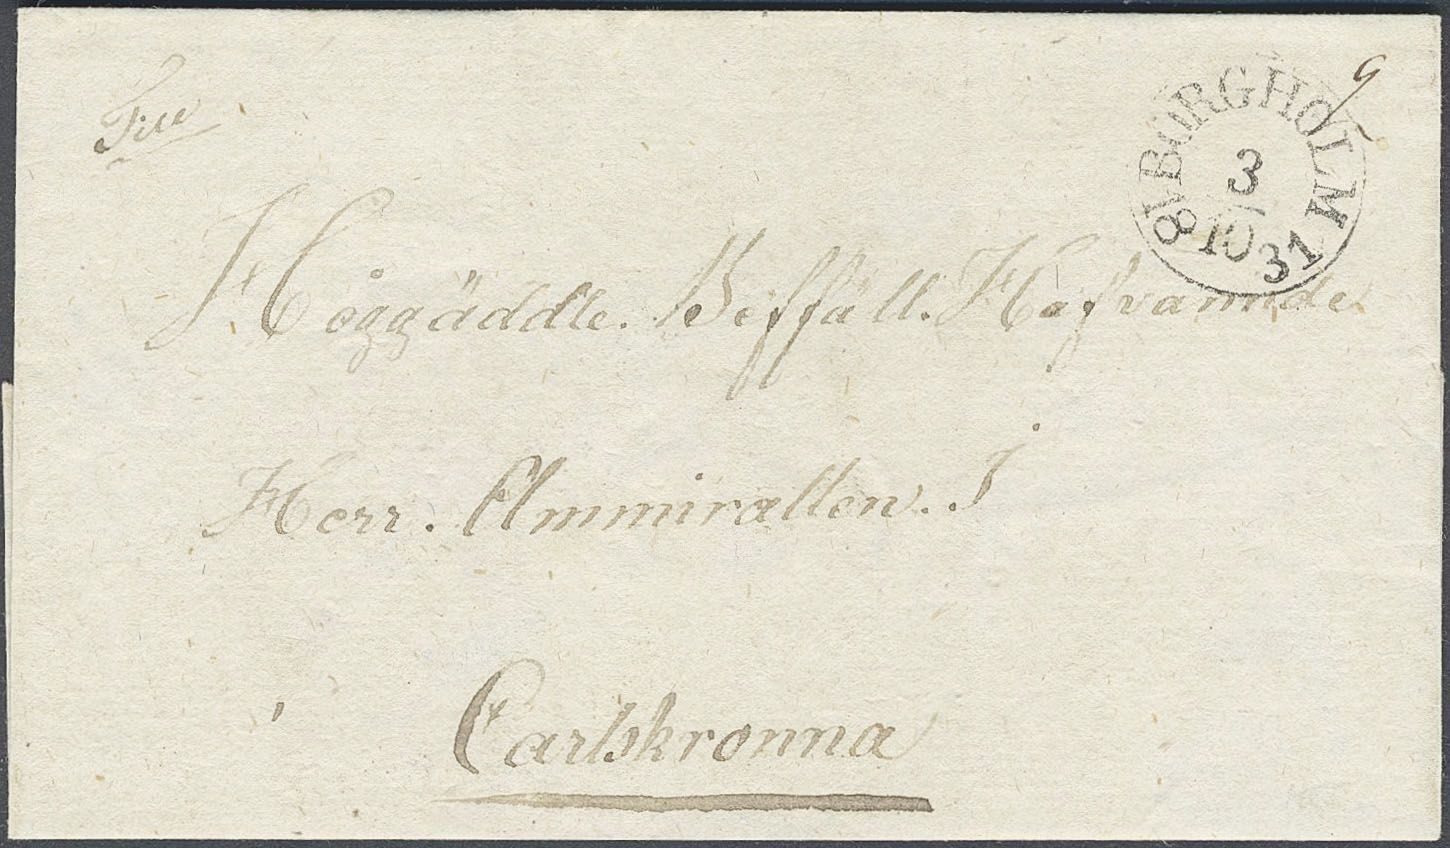 Till
BORGHOLM
3
10
1831
9
Höggäddle. Beffäll. Hafvannde
Herr. Ammirallen. I
Carlskronna